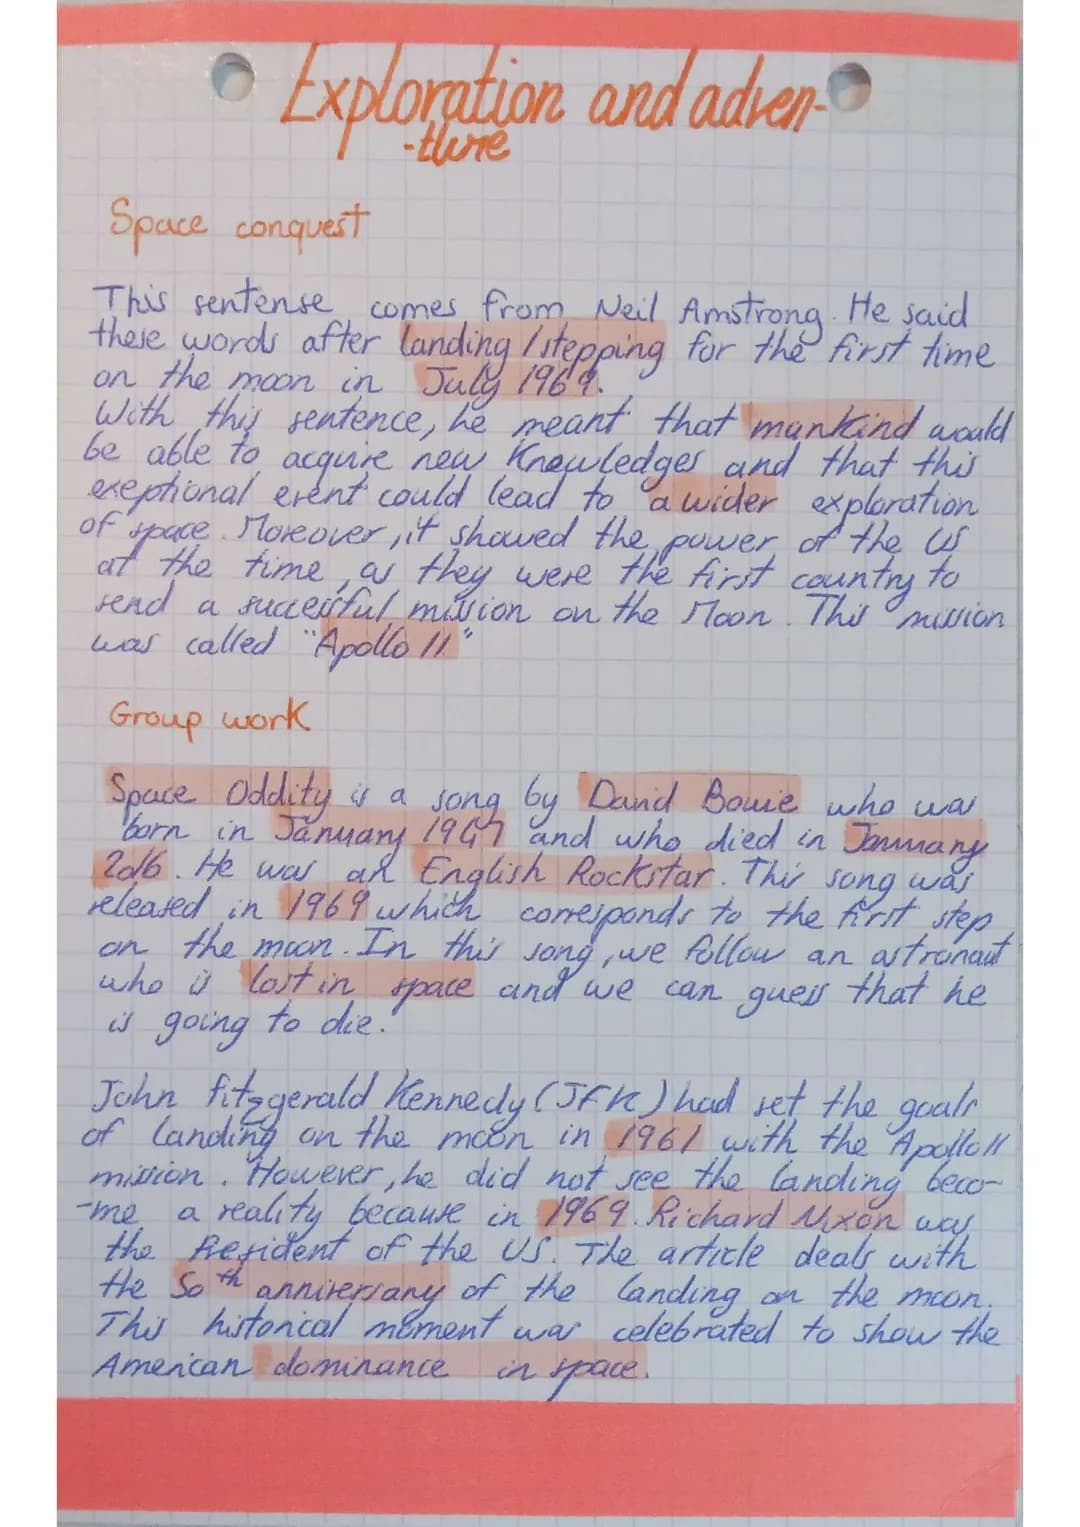 Exploration and adven-
-ture
Space conquest
This sentense comes from Neil Amstrong. He said
these words after landing / stepping for the first time
on the moon in July 1969.
With this sentence, he meant that mankind would
be able to acquire new Knowledges and that this
exeptional event could lead to a wider exploration
of space. Moreover, it showed the power of the US
at the time, as they were the first country to
send a successful mission on the Moon. This mission
was called "Apollo 11"
Group work
Space Oddity is a song by David Bowie who was
born in January 1947 and who died in January
2016. He was an English Rockstar. This song was
released in 1969 which corresponds to the first step
on the moon. In this song, we follow an astronaut
who is lost in space and we can guess that he
is going to die.
John Fitzgerald Kennedy (JFK) had set the goals
of landing on the moon in 1961 with the Apollo 11
mission. However, he did not see the landing beco-
-me a reality because in 1969. Richard Nixon was
the President of the US. The article deals with
the 50th anniversary of the landing on the moon.
This historical moment was celebrated to show the
American dominance in space.